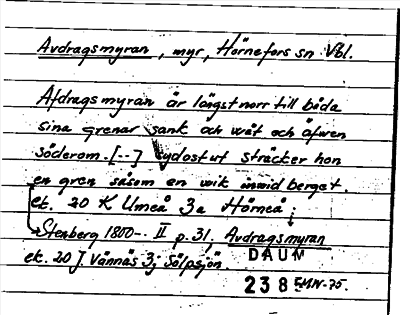 Avdragsmyran, myr, Hörnefors sn Vbl.
Afdragsmyran är långst norr till båda
sina grenar sank och wåt och äfwen
söderom. [--] sydost ut sträcker hon
en gren såsom en wik inwid berget.
ek. 20 K Umeå 3a Hörneå;
Stenberg 1800-. II p. 31, Avdragsmyran
ek. 20 J. Vännäs 3j Sölpsjön.
DAUM
238 EMN-75.